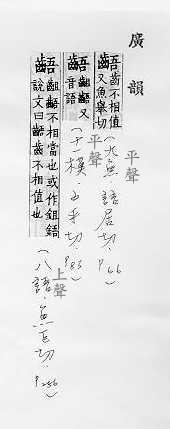 廣韻
齬 齒不相值
又魚舉切
平聲
(九魚 語居切 P66)
齬 齟齬又
音語
平聲
(十一模 五乎切 P83)
齬 齟齬不相當也或作鉏鋙
說文曰齬齒不相值也
上聲
(八語 魚巨切 P256)